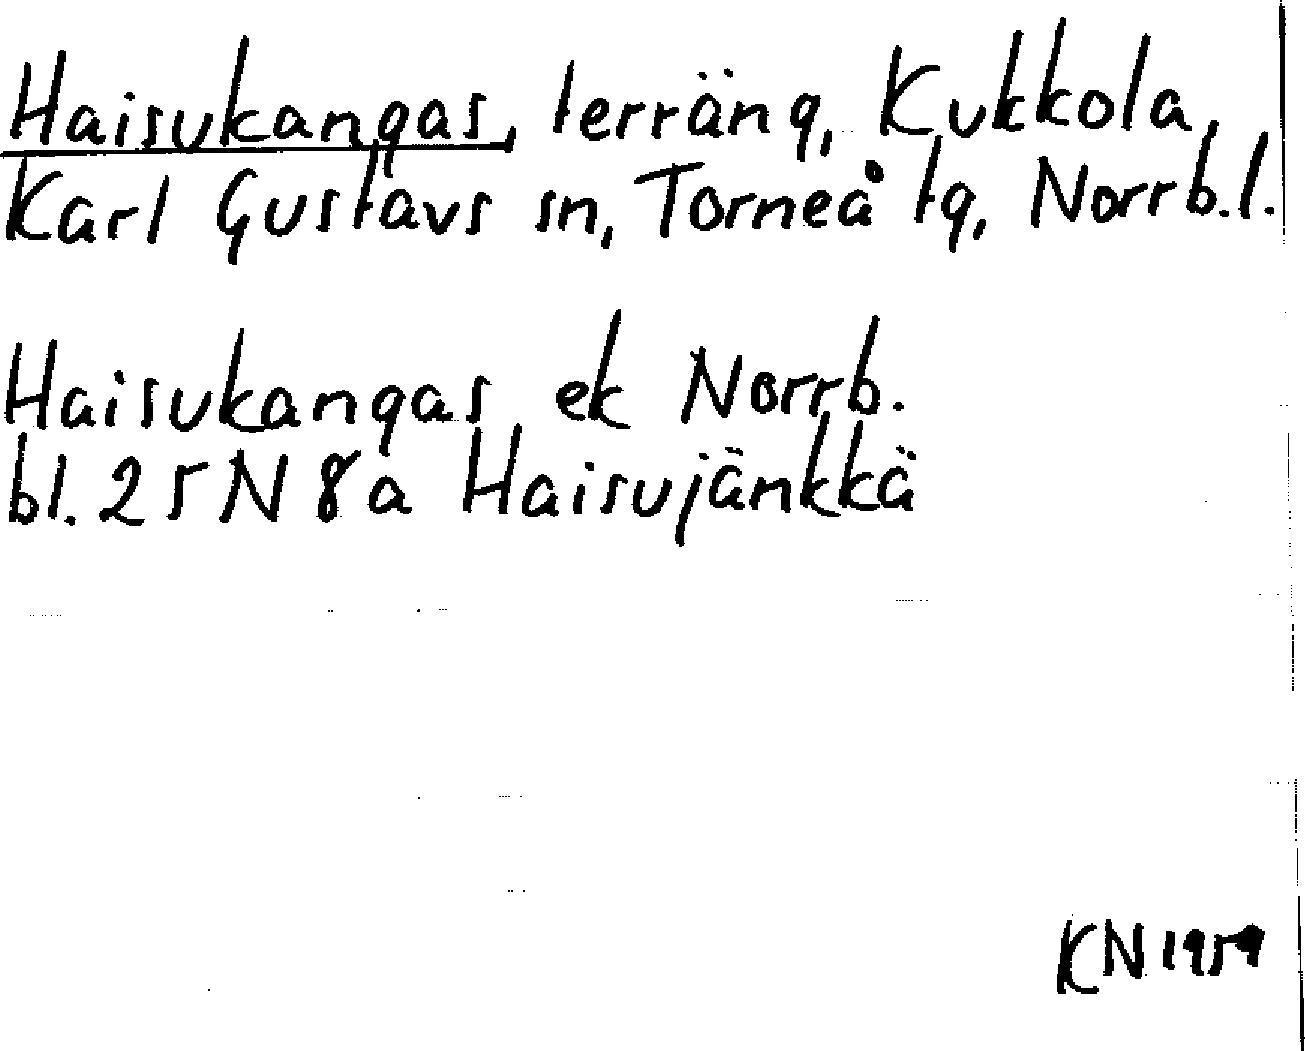 Haisukangas, terräng, Kukkola,
Karl Gustavs sn, Torneå tg, Norrb.l.
Haisukangas ek Norrb.
bl. 25 N 8 a Haisujänkkä
KN 1959